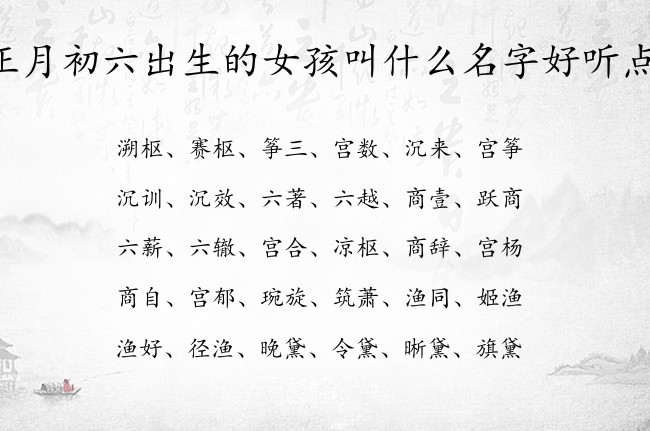 正月初六出生的女孩叫什么名字好听点
溯枢、赛枢、筝三、宫数、沉来、宫筝
沉训、沉效、六著、六越、商壹、跃商
六薪、六辙、宫合、凉枢、商辞、宫杨
商自、宫郁、琬旋、筑萧、渔同、姬渔
渔好、径渔、晚黛、令黛、晰黛、旗黛